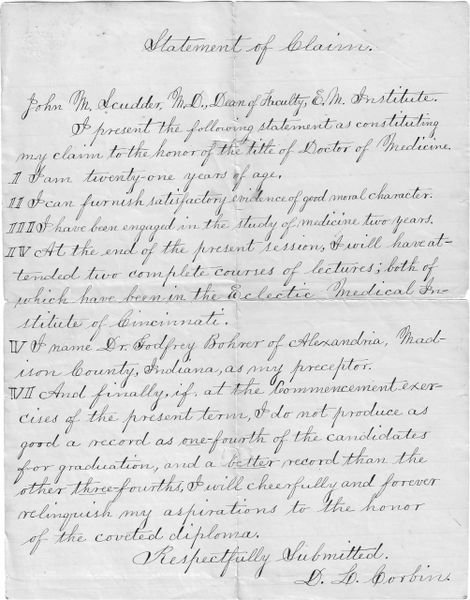 Statement of Claim.
John M. Scudder, M.D., Dean of Faculty, E. M. Institute.
I present the following statement as constituting
my claim to the honor of the title of Doctor of Medicine.
I I am twenty-one years of age.
II I can furnish satisfactory evidence of good moral character.
III I have been engaged in the study of medicine two years.
IV At the end of the present session, I will have at-
tended two complete courses of lectures; both of
which have been in the Eclectic Medical In-
stitute of Cincinnati.
V I name Dr. Godfrey Bohrer of Alexandria, Mad-
ison County, Indiana, as my preceptor.
VI And finally, if, at the Commencement exer-
cises of the present term, I do not produce as
good a record as one-fourth of the candidates
for graduation, and a better record than the
other three-fourths, I will cheerfully and forever
relinquish my aspirations to the honor
of the coveted diploma.
Respectfully Submitted.
D. L. Corbin.